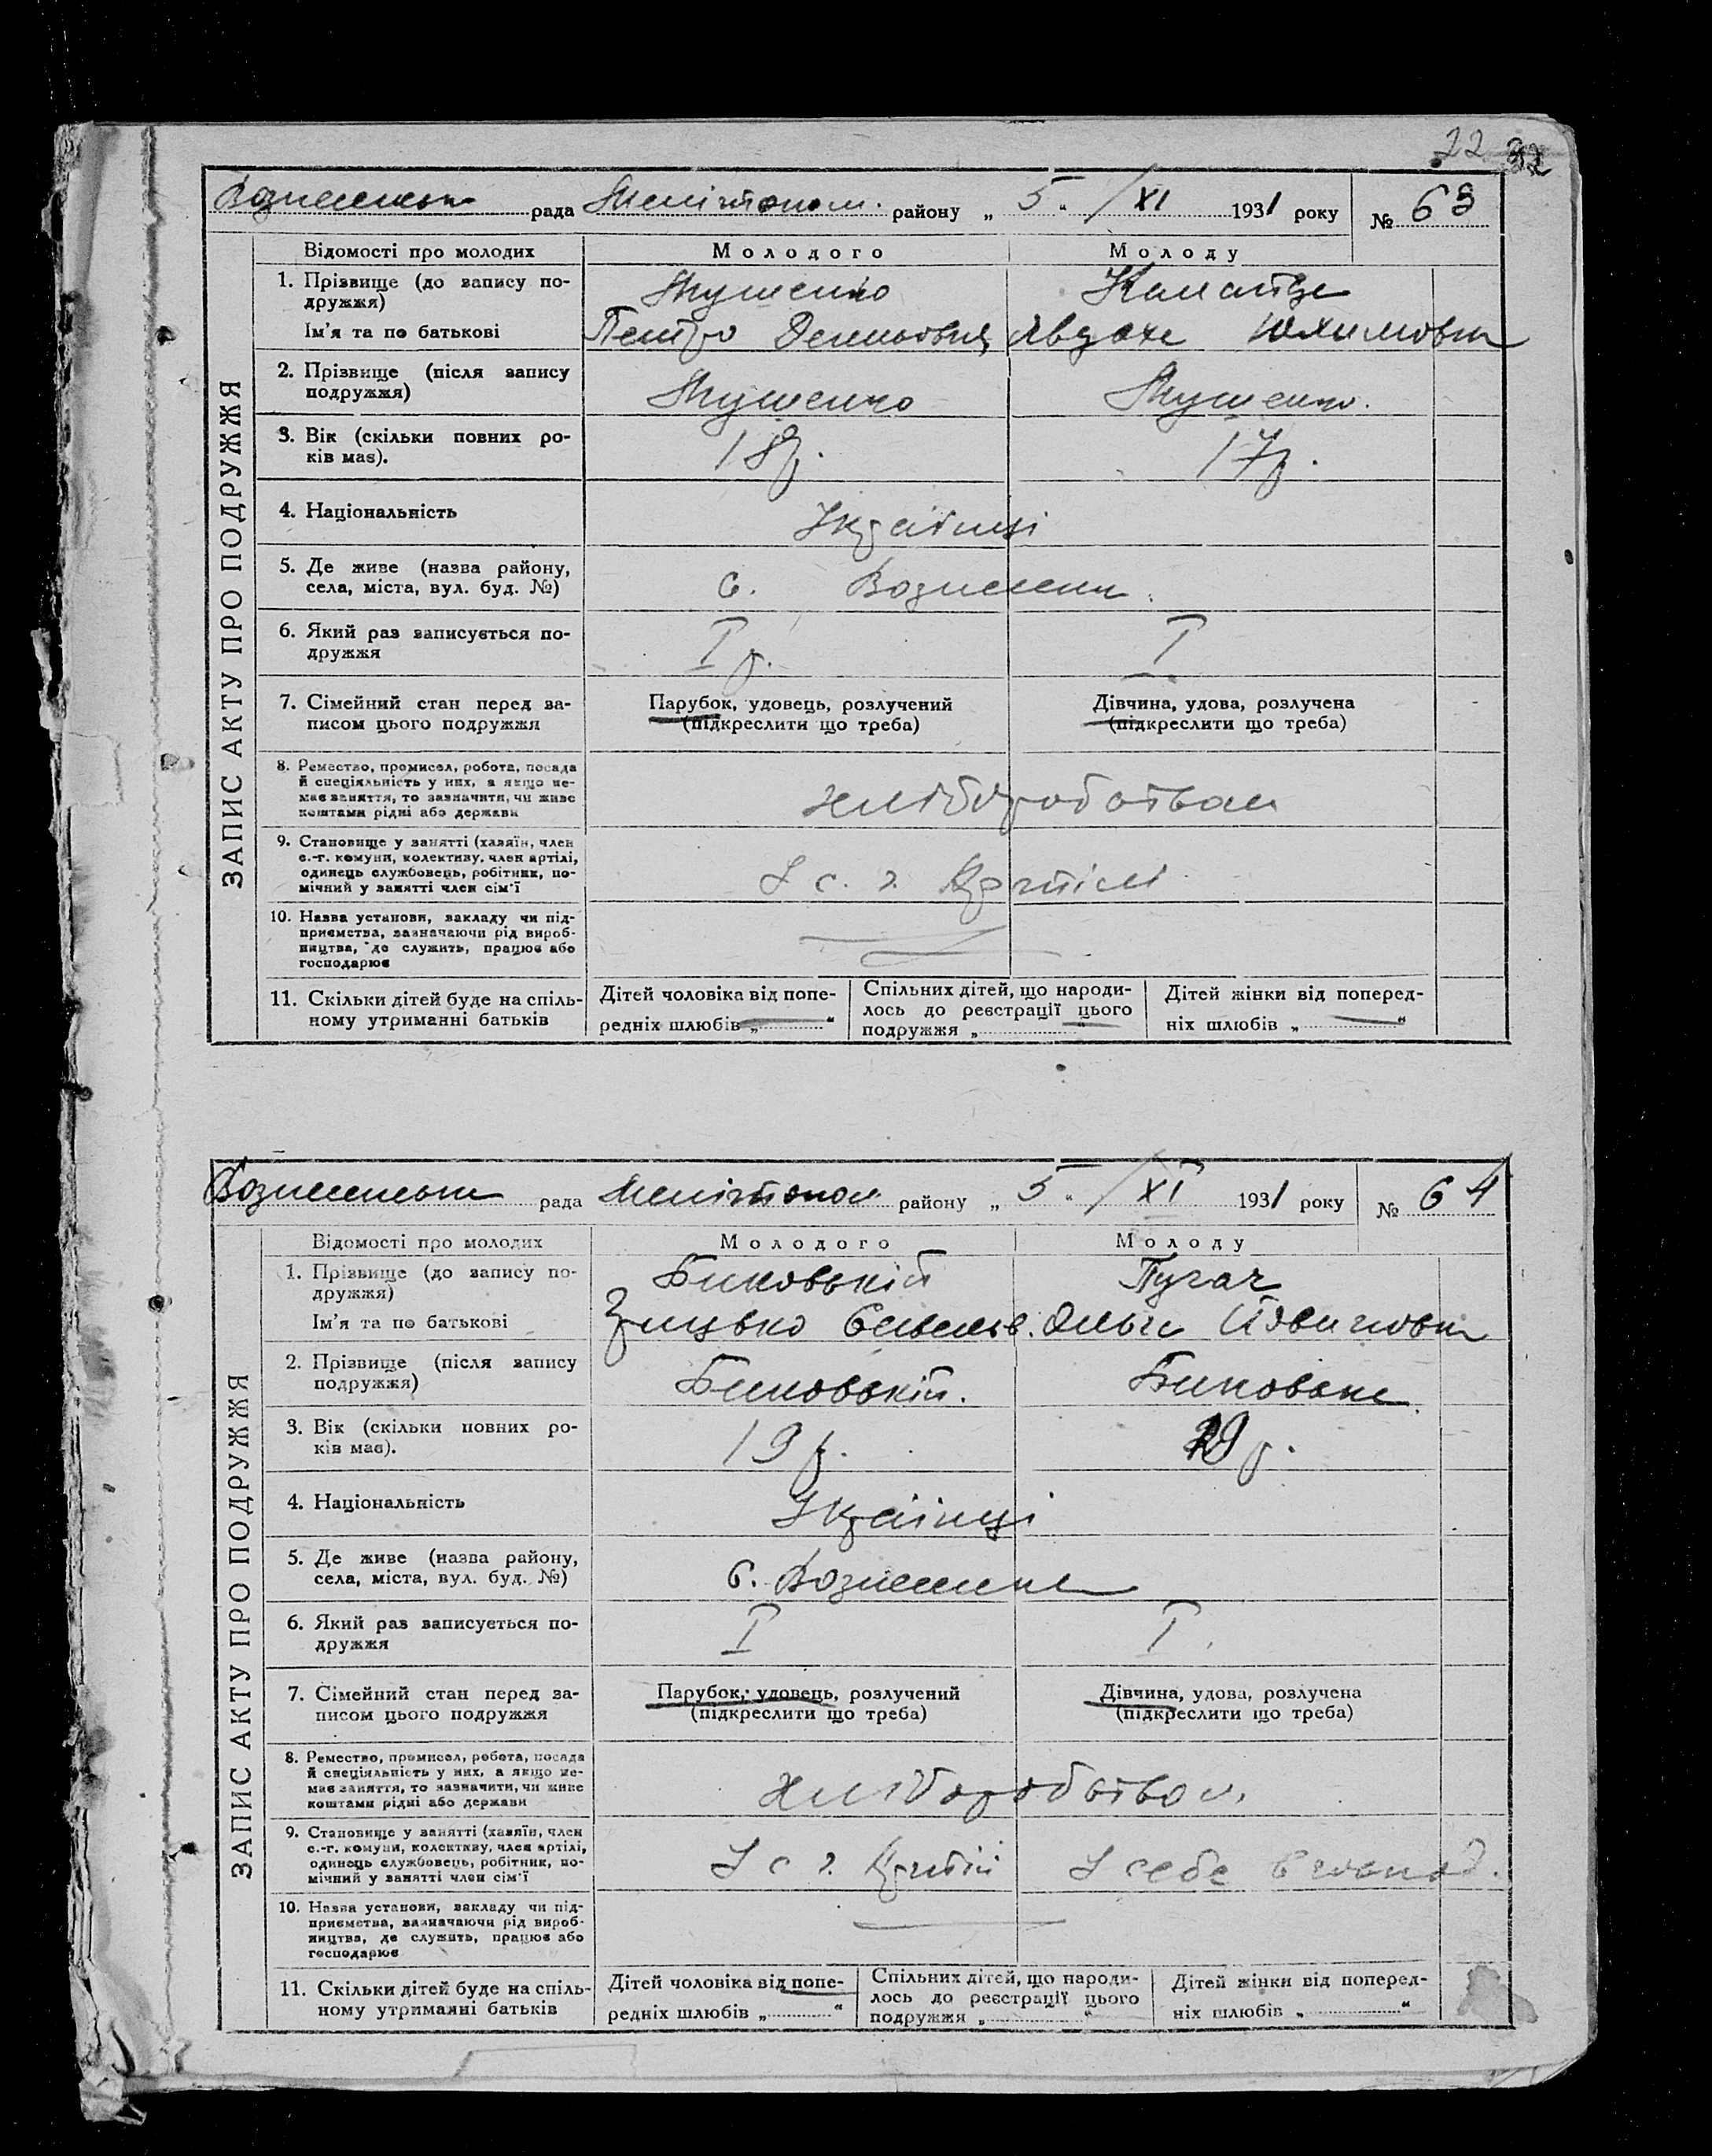 22 32
Вознесенськ рада Мелітопол. району „ 5 “ / XI 1931 року № 63
ЗАПИС АКТУ ПРО ПОДРУЖЖЯ
Відомості про молодих Молодого Молоду
1. Прізвище (до запису по-
дружжя)
Ім'я та по батькові Петро Явдоха Юхимовна
2. Прізвище (після запису
подружжя)
3. Вік (скільки повних ро- 18 р. 17 р.
ків має).
4. Національність Українці
5. Де живе (назва району,
села, міста, вул. буд. №) с. Вознесенк.
6. Який раз записується по- I р. I
дружжя
7. Сімейний стан перед за- Парубок, удовець, розлучений Дівчина, удова, розлучена
писом цього подружжя (підкреслити що треба) (підкреслити що треба)
8. Ремество, промисел, робота, посада
й спеціяльність у них, а якщо не-
має заняття, то зазначити, чи живе хліборобством
коштами рідні або держави
9. Становище у занятті (хазяїн, член
с.-г. комуни, колективу, член артілі,
одинець службовець, робітник, по- У с. г. Артілі
мічний у занятті член сім'ї
10. Назва установи, закладу чи під-
приємства, зазначаючи рід вироб-
ництва, де служить, працює або
господарює
11. Скільки дітей буде на спіль- Дітей чоловіка від попе- Спільних дітей, що народи- Дітей жінки від поперед-
ному утриманні батьків редніх шлюбів „ “ лось до реєстрації цього ніх шлюбів „ “
подружжя „ “
Вознесенськ рада Мелітопол району „ 5 “ / XI 1931 року № 64
ЗАПИС АКТУ ПРО ПОДРУЖЖЯ
Відомості про молодих Молодого Молоду
1. Прізвище (до запису по- Биковський Пугач
дружжя)
Ім'я та по батькові Грицько Савелів. Ольга
2. Прізвище (після запису
подружжя) Биковський. Биковська
3. Вік (скільки повних ро- 19 р. р.
ків має).
4. Національність Українці
5. Де живе (назва району,
села, міста, вул. буд. №) с. Вознесенка
6. Який раз записується по- I I.
дружжя
7. Сімейний стан перед за- Парубок, удовець, розлучений Дівчина, удова, розлучена
писом цього подружжя (підкреслити що треба) (підкреслити що треба)
8. Ремество, промисел, робота, посада
й спеціяльність у них, а якщо не-
має заняття, то зазначити, чи живе хліборобством.
коштами рідні або держави
9. Становище у занятті (хазяїн, член
с.-г. комуни, колективу, член артілі,
одинець службовець, робітник, по- У с г. Артілі У себе в господ.
мічний у занятті член сім'ї
10. Назва установи, закладу чи під-
приємства, зазначаючи рід вироб-
ництва, де служить, працює або
господарює
11. Скільки дітей буде на спіль- Дітей чоловіка від попе- Спільних дітей, що народи- Дітей жінки від поперед-
ному утриманні батьків редніх шлюбів „ “ лось до реєстрації цього ніх шлюбів „ “
подружжя „ “